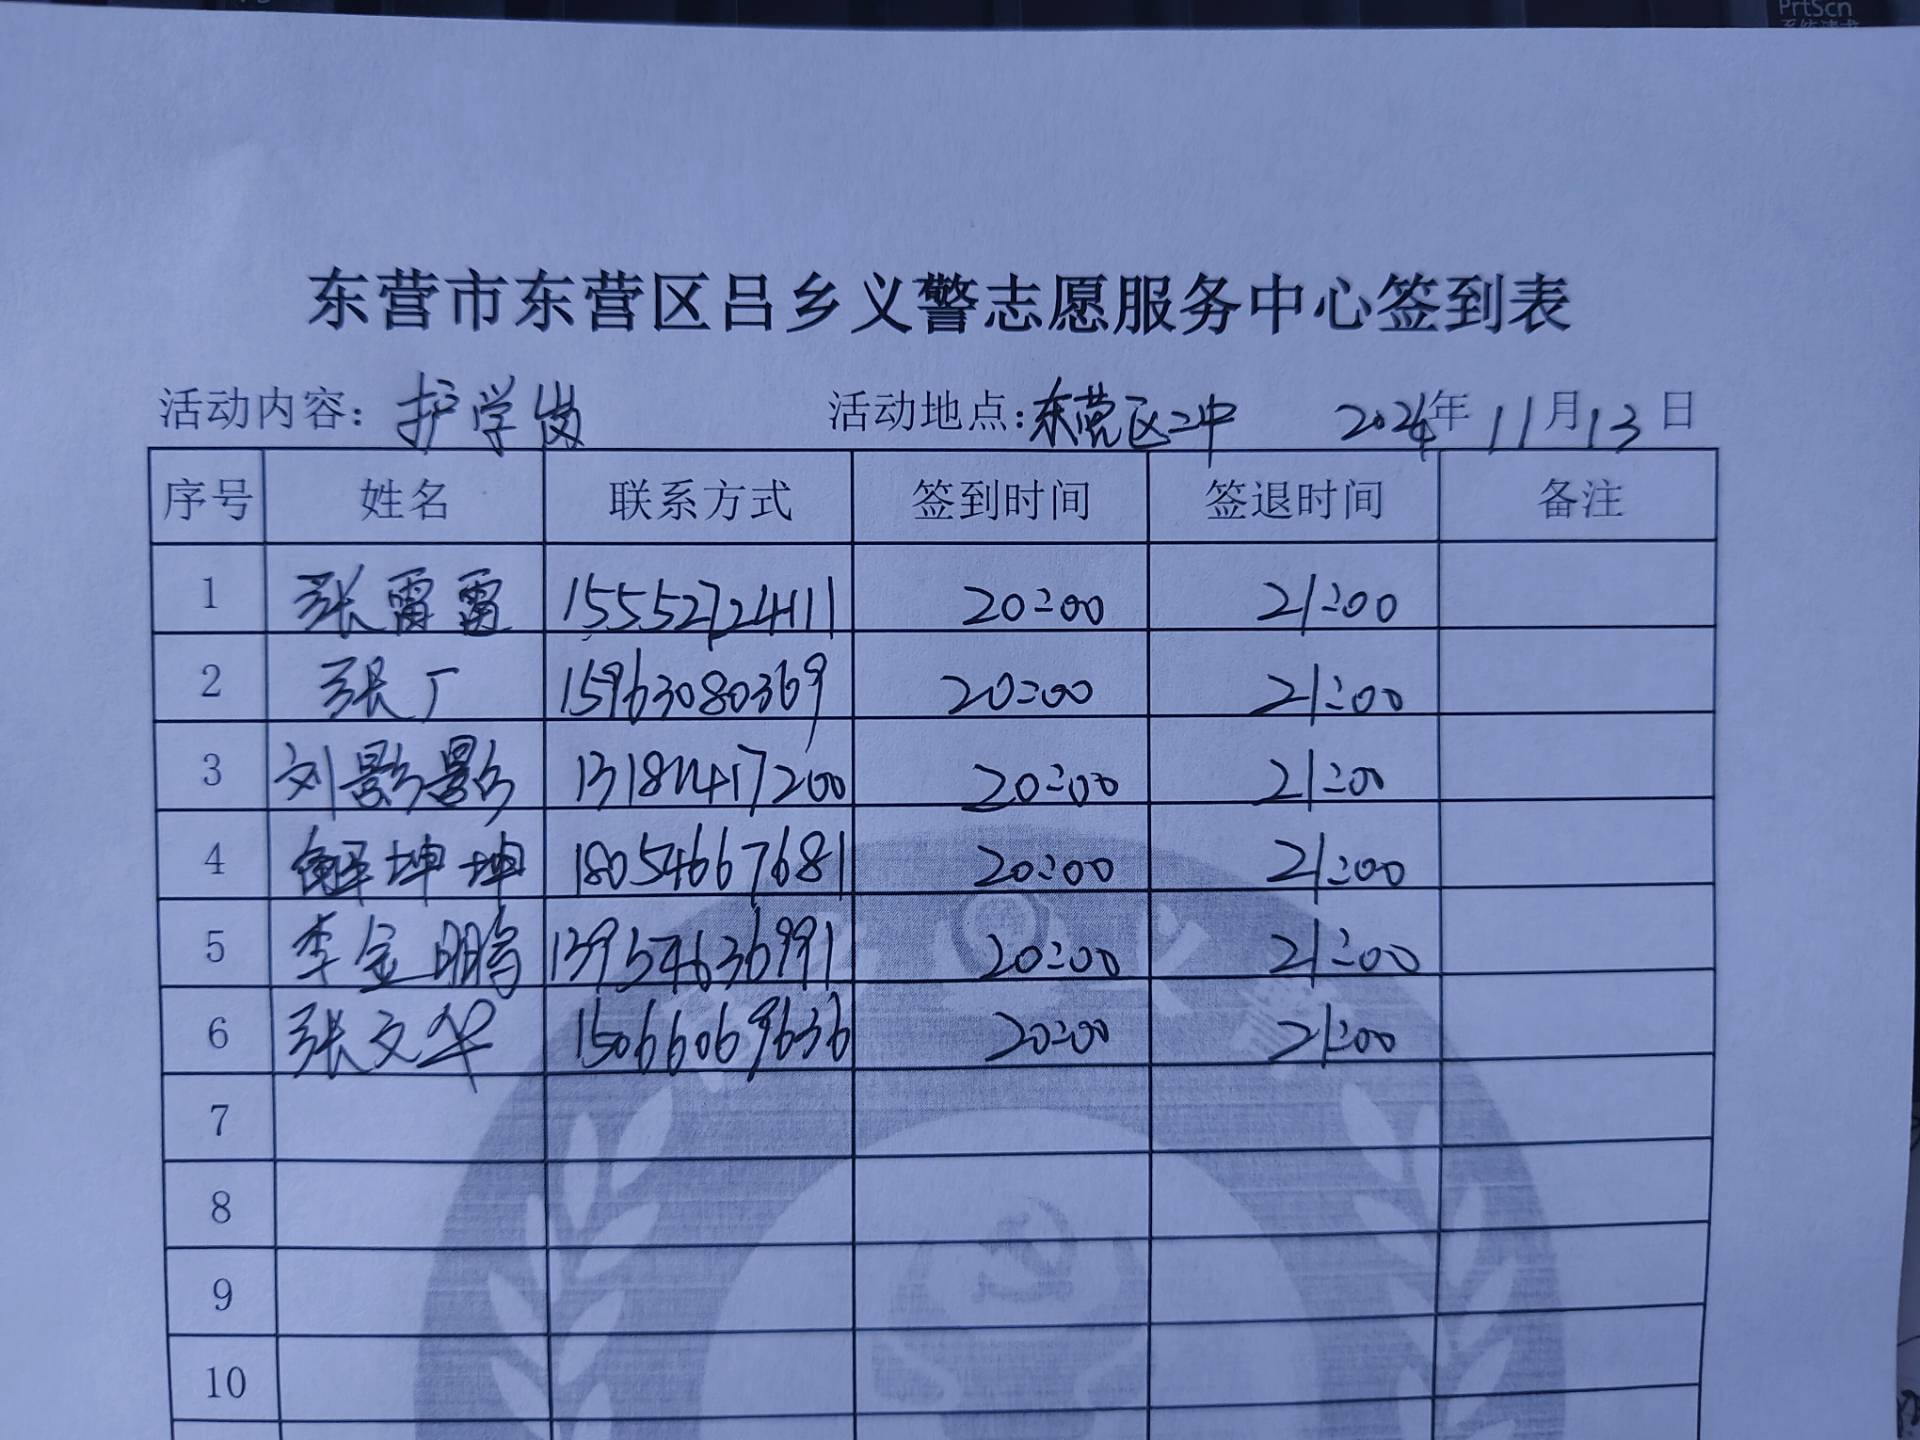 PrtScn
东营市东营区吕乡义警志愿服务中心签到表
活动内容：护学岗 活动地点：东营区二中 2024年11月13日
序号 姓名 联系方式 签到时间 签退时间 备注
1 张雷雷 15552724111 20:00 21:00
2 张厂 15963080369 20:00 21:00
3 刘影影 20:00 21:00
4 解坤坤 18054667681 20:00 21:00
5 李金鹏 13954636991 20:00 21:00
6 张文华 15066069636 20:00 21:00
7
8
9
10